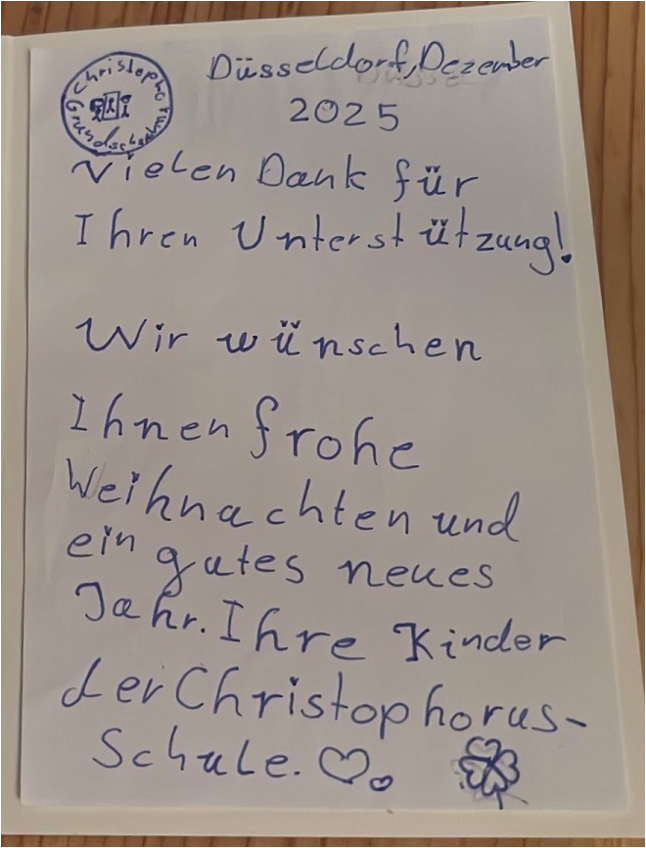 Christophorus
Grundschule
Düsseldorf, Dezember
2025
Vielen Dank für
Ihren Unterstützung!
Wir wünschen
Ihnen frohe
Weihnachten und
ein gutes neues
Jahr. Ihre Kinder
der Christophorus-
Schule.